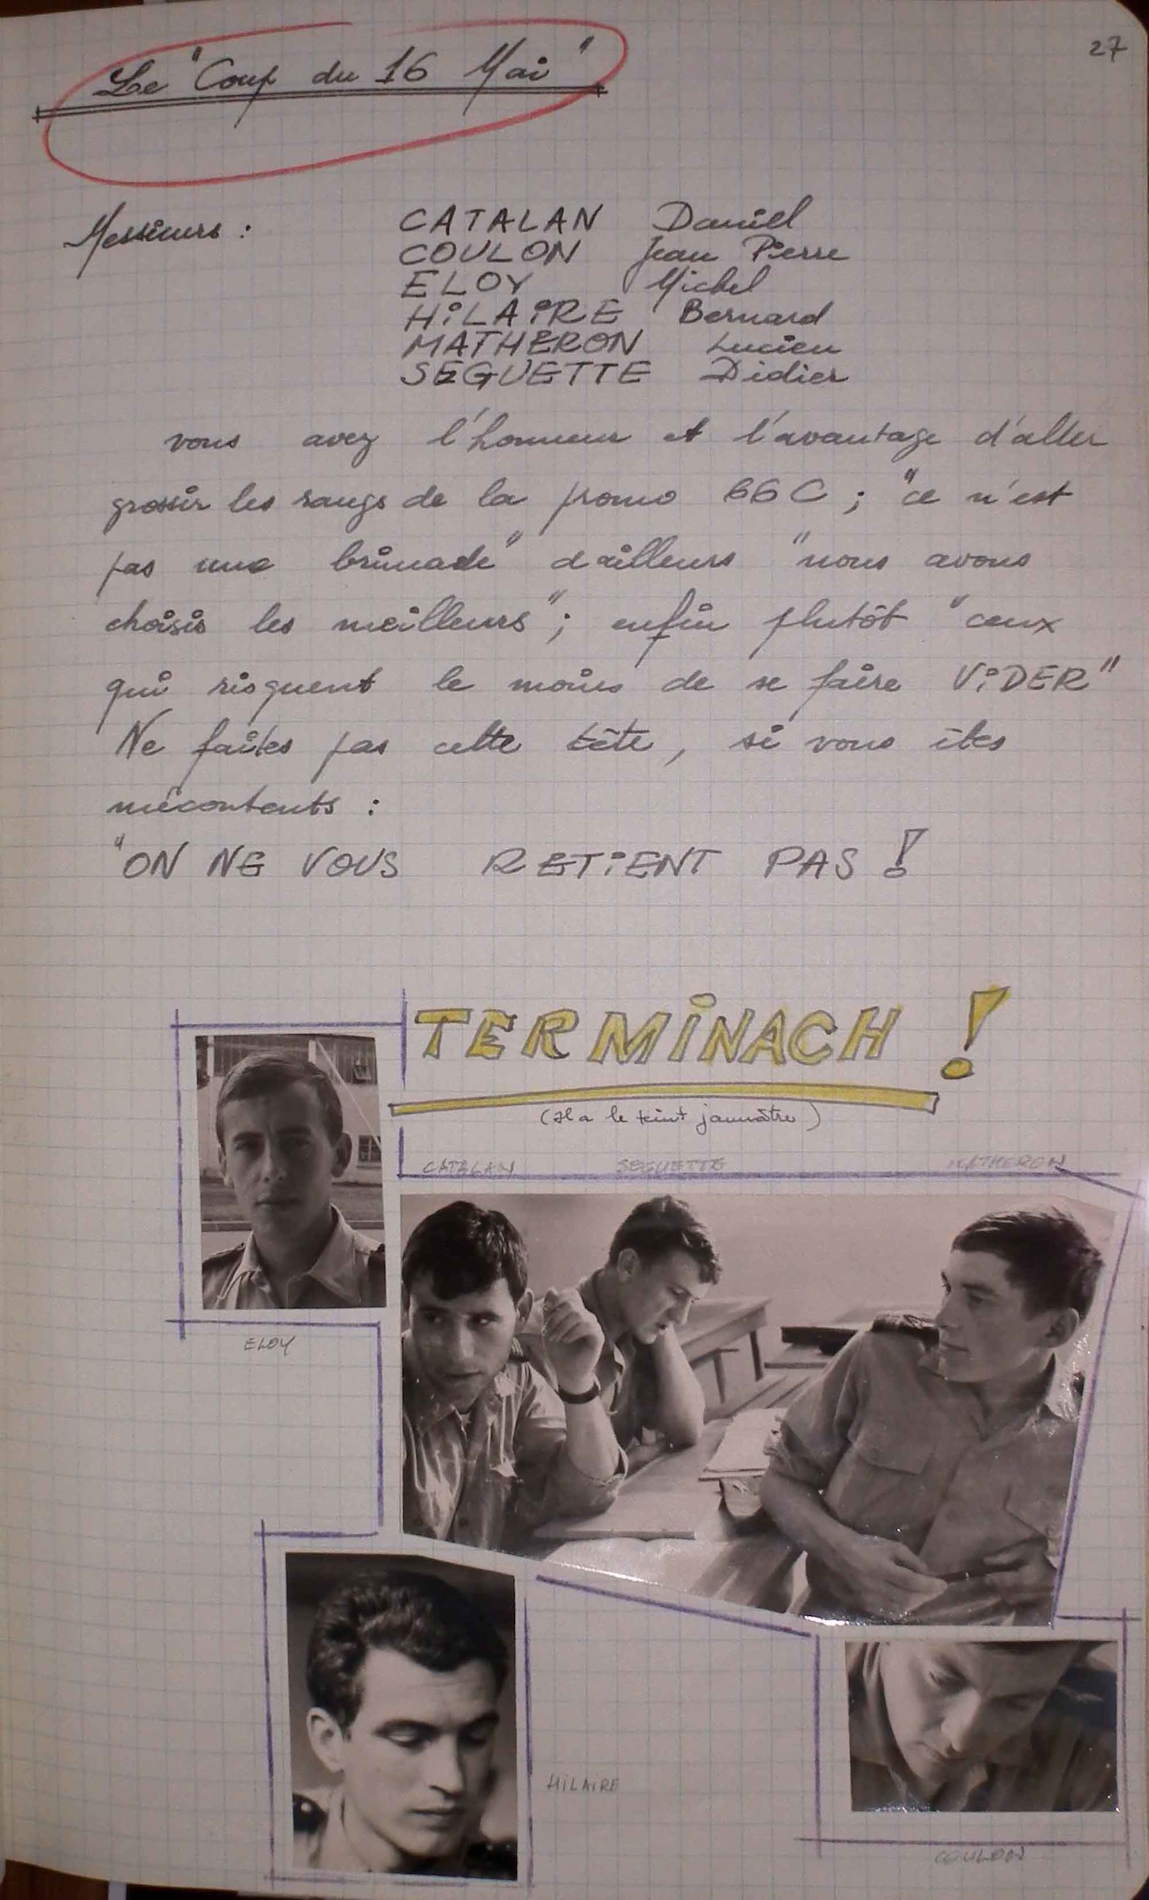 27
Le "Coup du 16 Mai"
Messieurs :
CATALAN Daniel
COULON Jean Pierre
ELOY Michel
HiLAiRE Bernard
MATHERON Lucien
SEGUETTE Didier
vous avez l'honneur et l'avantage d'aller
grossir les rangs de la promo 66C ; "ce n'est
pas une brimade" d'ailleurs "nous avons
choisis les meilleurs" ; enfin plutôt "ceux
qui risquent le moins de se faire ViDER"
Ne faites pas cette tête, si vous êtes
mécontents :
"ON NE VOUS RETiENT PAS !
TERMiNACH !
(il a le teint jaunâtre)
CATALAN SEGUETTE MATHERON
ELOY
HiLAiRE
COULON